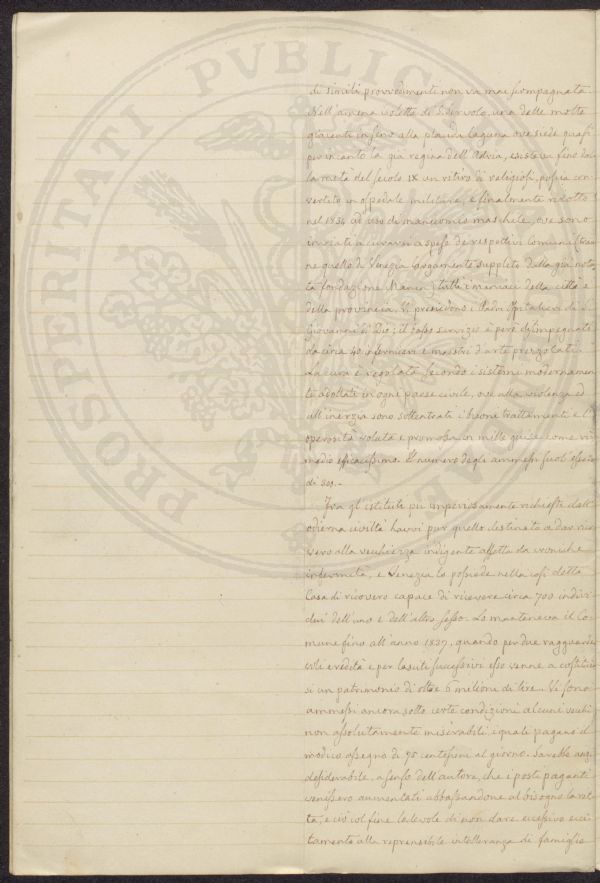 PROSPERITATI PVBLICAE
di simili provvedimenti non va mai scompagnata.
Nell'amena isoletta di S. Servolo, una delle molte
giacenti in seno alla placida laguna ove siede quasi
per incanto la già regina dell'Adria, esisteva fino dal
la metà del secolo IX un ritiro di religiosi, poscia con
vertito in ospedale militare, e finalmente ridotto
nel 1834 ad uso di manicomio maschile, ove sono
inviati a curarsi a spese de' rispettivi Comuni (tran
ne quello di Venezia largamente supplito dalla già nota
ta fondazione Manin) tutti i maniaci della città e
della provincia. Vi presiedono i Padri Ospitalieri di S.
Giovanni di Dio; il basso servizio è però disimpegnato
da circa 40 infermieri e maestri d'arte prezzolati.
La cura è regolata secondo i sistemi modernamen
te adottati in ogni paese civile, ove alla violenza ed
all'inerzia sono sottentrati i buoni trattamenti e l'
operosità voluta e promossa in mille guise come ri
medio efficacissimo. Il numero degli ammessi suol essere
di 300.-
Fra gl'istituti più imperiosamente richiesti dall'
odierna civiltà havvi pur quello destinato a dar rico
vero alla vecchiezza indigente affetta da croniche
infermità, e Venezia lo possiede nella così detta
Casa di ricovero capace di ricevere circa 700 indivi
dui dell'uno e dell'altro sesso. Lo manteneva il Co
mune fino all'anno 1837, quando per due ragguarde
voli eredità e per lasciti successivi esso venne a costituir
si un patrimonio di oltre 6 milioni di lire. Vi sono
ammessi ancora sotto certe condizioni alcuni vecchi
non assolutamente miserabili, i quali pagano il
modico assegno di 75 centesimi al giorno. Sarebbe anzi
desiderabile, a senso dell'autore, che i posti paganti
venissero aumentati abbassandone al bisogno la ret
ta, e ciò col fine lodevole di non dare eccessivo ecci
tamento alla reprensibile intolleranza di famiglie